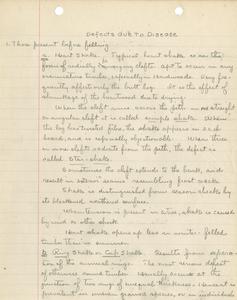 Defects due to Disease
1. Those present before felling
a. Heart Shake. Typical heart shake is in the
form of ordinary longitudinal clefts. Apt to occur in any
overmature timber, especially in Hardwoods. Very fre-
quently affects only the butt log. It is the effect of
shrinkage of the heartwood due to drying.
When the cleft runs across the pith in straight
or angular cleft it is called simple shake. When
the log has twisted fibre, the shake appears in each
board, and is especially objectionable. When three
or more clefts radiate from the pith, the defect is
called Star-shake.
Sometimes the cleft extends to the bark, and
result in exterior seams resembling frost cracks.
Shake is distinguished from season checks by
its blackened weathered surface.
When tension is present in a tree, shake is caused
by wind or other shock.
Heart shake opens up less in winter-felled
timber than in summer.
b. Ring Shake or Cup Shake. Results from separa-
tion of the annual rings. The most serious defect
of otherwise sound timber. Usually occurs at the
junction of two rings of unequal thickness. Hence it is
prevalent in uneven grained species, or in individual